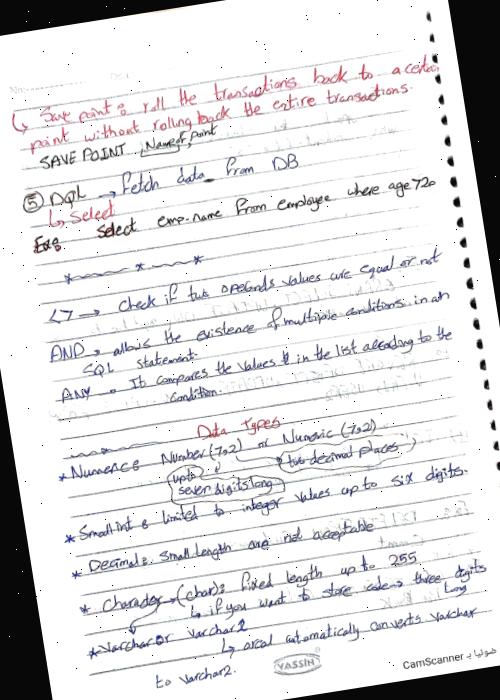 ↳ Save point: roll the transactions back to a certain
point without rolling back the entire transactions.
SAVE POINT Name of point
⑤ DQL → Fetch data from DB
↳ Select
Ex: Select emp-name from employee where age > 20
<> → Check if two operands values are equal or not
AND → allows the existence of multiple conditions in an
SQL statement.
ANY → It compares the values in the list according to the
condition.
Data Types
* Numerce Number (7,2) or Numeric (7,2)
up to seven digits long
two decimal places
* Smallint: limited to integer values up to six digits.
* Decimal: Small length are not acceptable
* Character → (char): fixed length up to 255
↳ if you want to store codes three digits
Long
* Varchar or Varchar2
↳ orcal automatically converts Varchar
to Varchar2.
YASSIN
CamScanner ضوئيا بـ